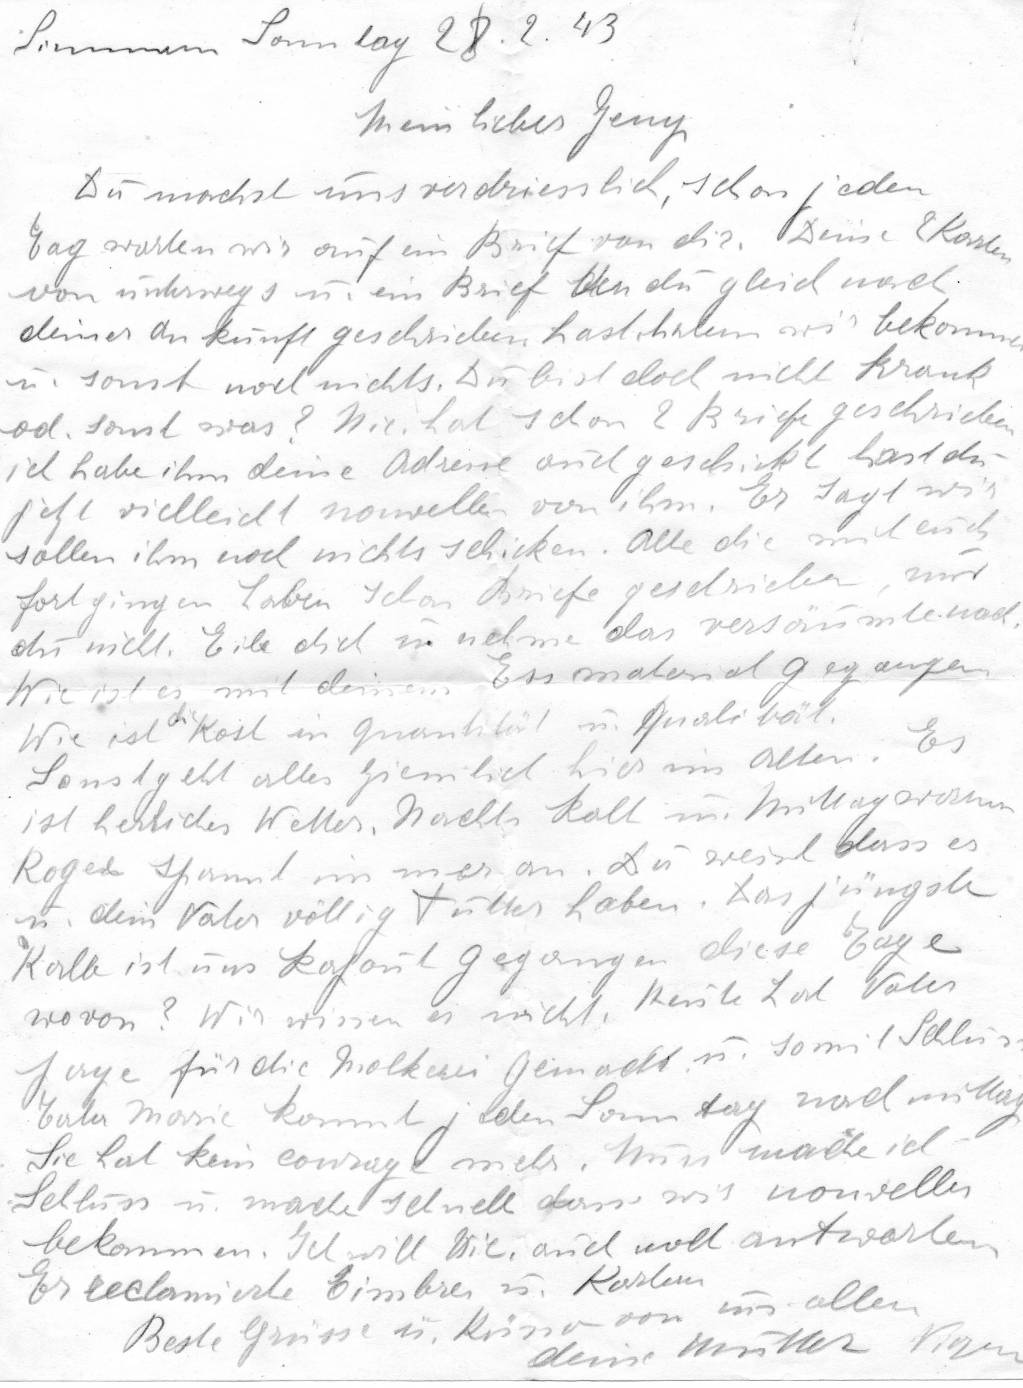 Sonntag 28.2.43
Mein lieber Jeny
Du machst uns verdriesslich, schon jeden
Tag warten wir auf ein Brief von dir. Deine 2 Karten
von unterwegs u. ein Brief den du gleich nach
deiner Ankunft geschrieben hast haben wir bekommen
u. sonst noch nichts. Du bist doch nicht krank
od. sonst was? Nic. hat schon 2 Briefe geschrieben
ich habe ihm deine Adresse auch geschickt hast du
jetzt vielleicht nouvellen von ihm. Er sagt wir
sollen ihm noch nichts schicken. Alle die mit euch
fortgingen haben schon Briefe geschrieben, nur
du nicht. Eile dich u. nehme das versäumte nach.
Wie ist es mit deinem Essmaterial gegangen
Wie ist die Kost in Quantität u. Qualität.
Sonst geht alles ziemlich hier im Alten. Es
ist herliches Wetter. Nachts kalt u. Mittag warm
Roger spannt immer an. Du weist dass er
u. dein Vater völlig Futter haben. Das jüngste
Kalb ist uns kaput gegangen diese Tage
wovon? Wir wissen es nicht. Heute hat Vater
für die Molkerei gemacht u. somit Schluss
Marie kommt jeden Sonntag nachmittag
Sie hat kein courage mehr. Nun mache ich
Schluss u. mache schnell dass wir nouvelles
bekommen. Ich will Nic. auch noch antworten
Er reclamierte Timbres u. Karten
Beste Grüsse u. Küsse von uns allen
deine Mutter